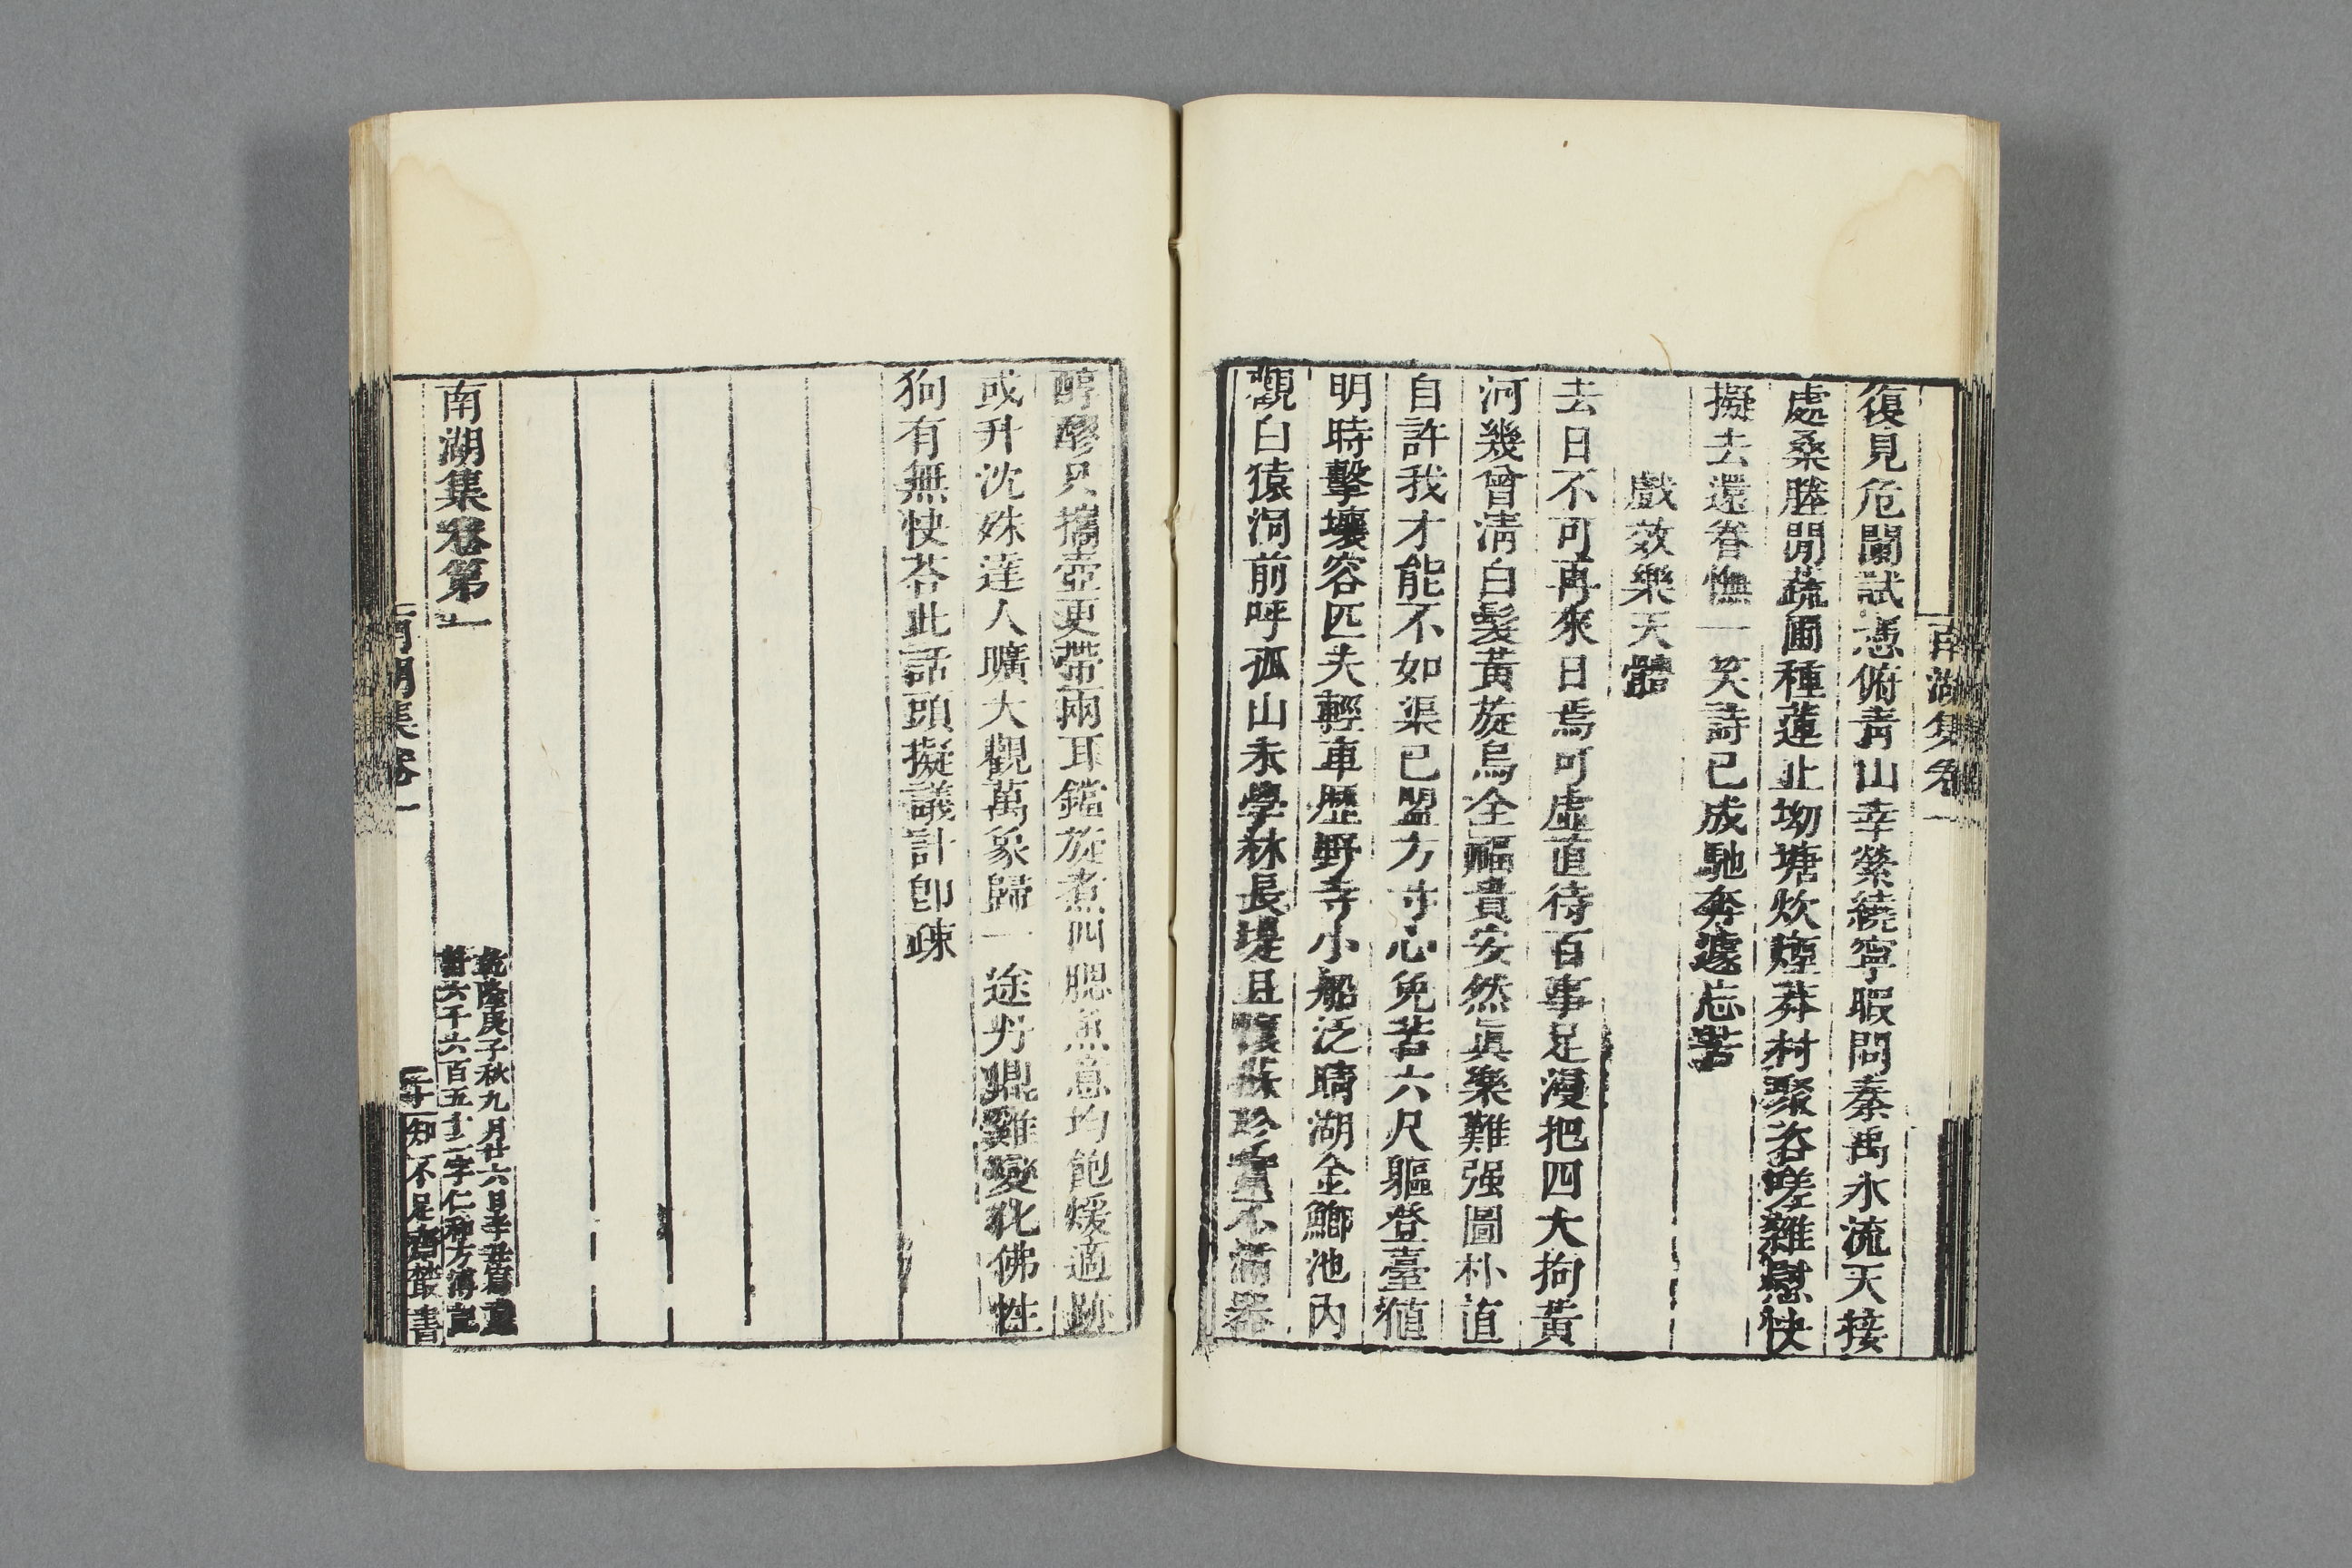 南湖集卷一
復見危闌試憑俯靑山幸縈繞寧暇問秦禹水流天接
處桑塍閒蔬圃種蓮止坳塘炊煙莽村聚咨嗟雜慰快
擬去還眷憮一笑詩已成馳奔遽忘苦
戲效樂天體
去日不可再來日焉可虛直待百事足漫把四大拘黃
河幾曾淸白髮黃旋烏全福貴安然眞樂難强圖朴直
自許我才能不如渠已盟方寸心免苦六尺軀登臺値
明時擊壤容匹夫輕車歷野寺小船泛晴湖金鯽池內
觀白猿洞前呼孤山未學林長堤且懷蘇珍羞不滿器
醇醪只攜壺更帶兩耳鐺旋煮四腮魚意均飽煖適跡
或升沈殊達人曠大觀萬象歸一途丹鼎雞變化佛性
狗有無快荅此話頭擬議計卽疎
南湖集卷第一
乾隆庚子秋九月廿六日辛丑寫畢
計六千六百五十一字仁和方溥記
南湖集卷一
知不足齋叢書